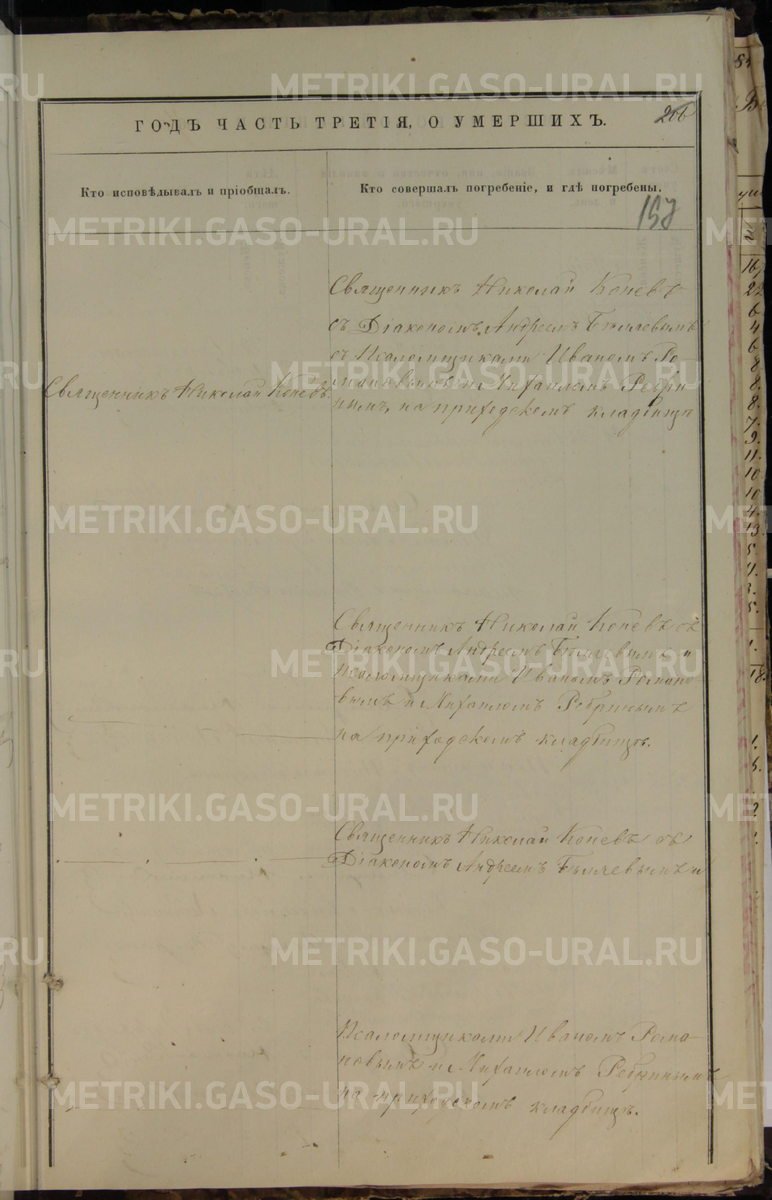 ГОДЪ ЧАСТЬ ТРЕТІЯ, О УМЕРШИХЪ.
Кто исповѣдывалъ и пріобщалъ.
Кто совершалъ погребеніе, и гдѣ погребены.
157
Священникъ Николай Коневъ
съ Діакономъ Андреемъ Бѣляевымъ
съ Псаломщиками Иваномъ Ро-
мановымъ и Михаиломъ Ребри-
нымъ, на приходскомъ кладбищѣ
Священникъ Николай Коневъ
Священникъ Николай Коневъ съ
Діакономъ Андреемъ Бѣляевымъ и
Псаломщиками Иваномъ Романо-
вымъ и Михаиломъ Ребринымъ
на приходскомъ кладбищѣ.
Священникъ Николай Коневъ съ
Діакономъ Андреемъ Бѣляевымъ и
Псаломщиками Иваномъ Рома-
новымъ и Михаиломъ Ребринымъ
на приходскомъ кладбищѣ.
METRIKI.GASO-URAL.RU